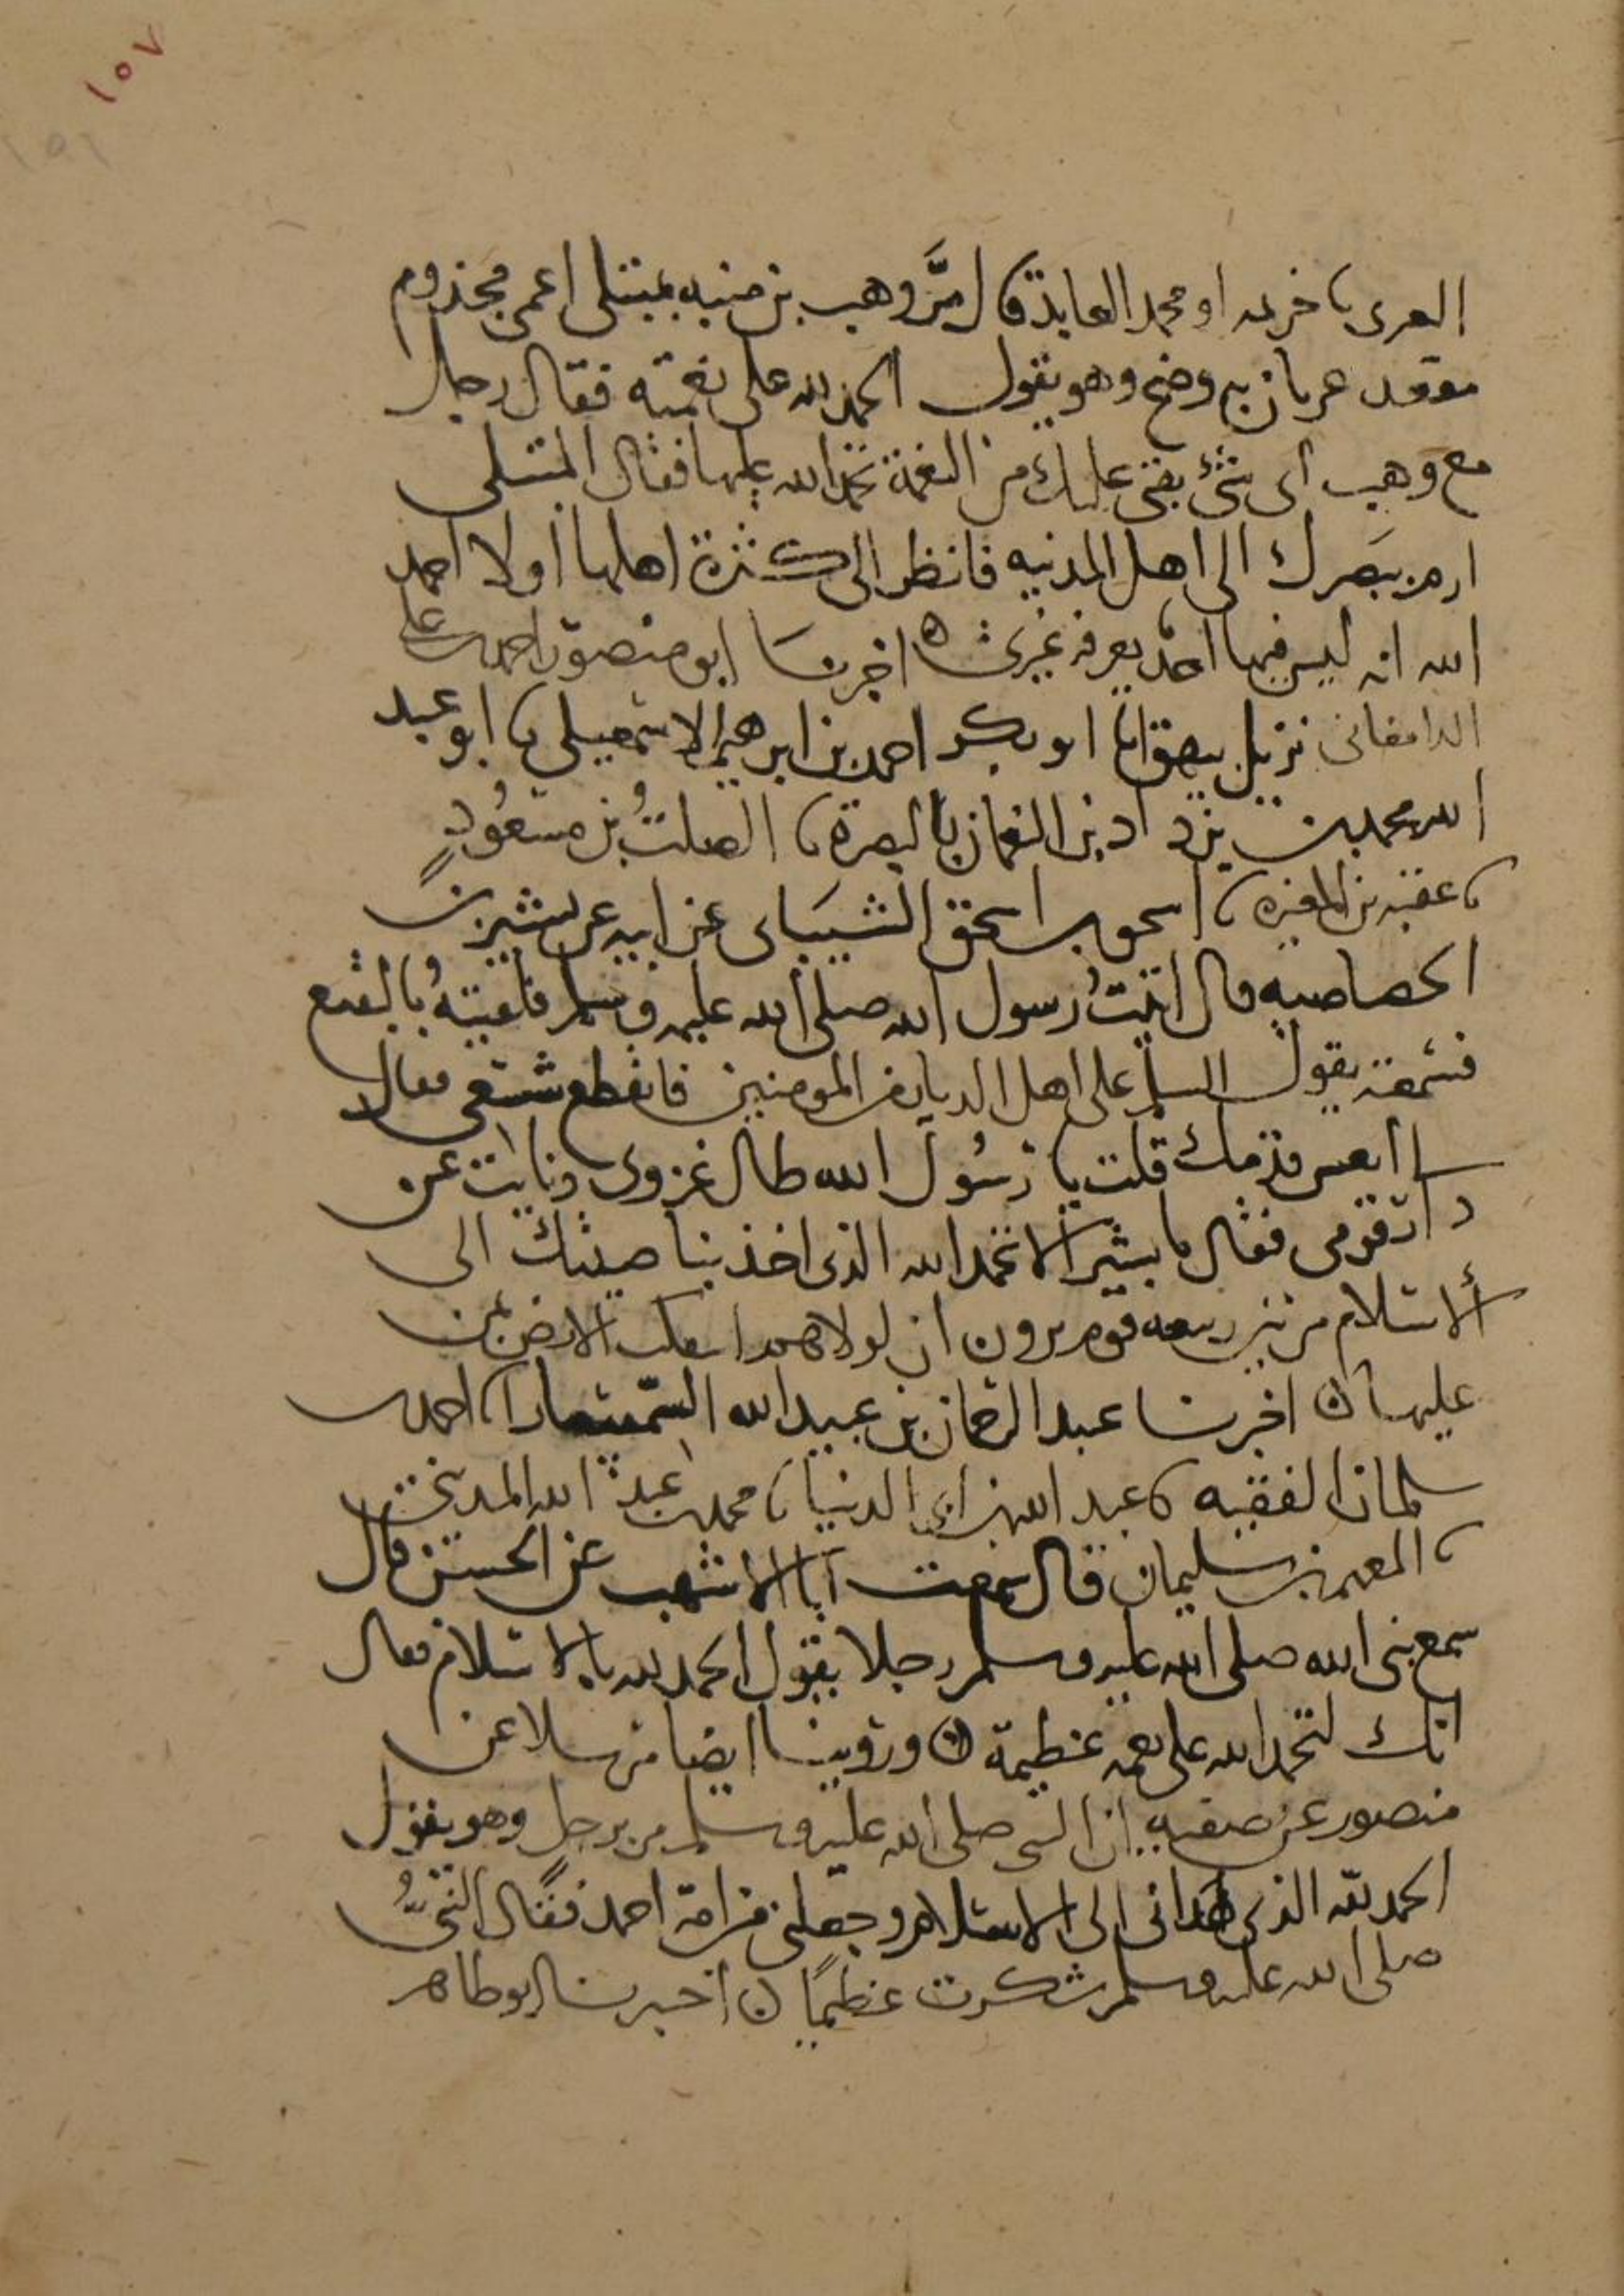 ١٥٧
١٥٦
العرى نا خزيمه ابو محمد العابد قال مرَّ وهب بن منبه بمبتلى اعمى مجذوم
مقعد عريان به وضح وهو يقول الحمد لله على نعمته فقال رجل
مع وهب اى شئ بقى عليك من النعمة تحمد الله عليها فقال المبتلى
ارم ببصرك الى اهل المدينه فانظر الى كثرة اهلها اولا احمد
الله انه ليس فيها احد يعرفه غيرى ه اخبرنا ابو منصور احمد بن على
الدامغانى نزيل بيهق انا ابو بكر احمد بن ابرهيم الاسمعيلى نا ابو عبد
الله محمد بن يزداد بن النعمان بالبصرة نا الصلتُ بن مسعُودٍ
نا عقبه بن المغيرة نا اسحق بن اسحق الشيبانى عن ابيه عن بشير بن
الخصاصيه قال اتيتُ رسول الله صلى الله عليه وسلم فلحقته بالبقيع
فسمعته يقول السلم على اهل الديار من المومنين فانقطع شسعى فقال
انعش قدمك قلت يا رسُول الله طال عزوبى ونايت عن
دار قومى فقال يا بشير الا تحمد الله الذى اخذ بناصيتك الى
الاسلام من بين ربيعه قوم يرون ان لولاهم انفكت الارض بمن
عليها ه اخبرنا عبد الرحمان بن عبيد الله السمسار نا احمد بن
سلمان الفقيه نا عبد الله بن ابى الدنيا نا محمد بن عبد الله المدينى
نا المعتمر بن سليمان قال سمعت ابا الاشهب عن الحسن قال
سمع نبى الله صلى الله عليه وسلم رجلا يقول الحمد لله بالاسلام فقال
انك لتحمد الله على نعمه عظيمة ه وروينا ايضا مرسلا عن
منصور عن صفيه ان النبى صلى الله عليه وسلم مر برجل وهو يقول
الحمد لله الذى هدانى الى الاسلام وجعلنى من امة احمد فقال النبىُّ
صلى الله عليه وسلم شكرت عظيمًا ه اخبرنا ابو طاهر